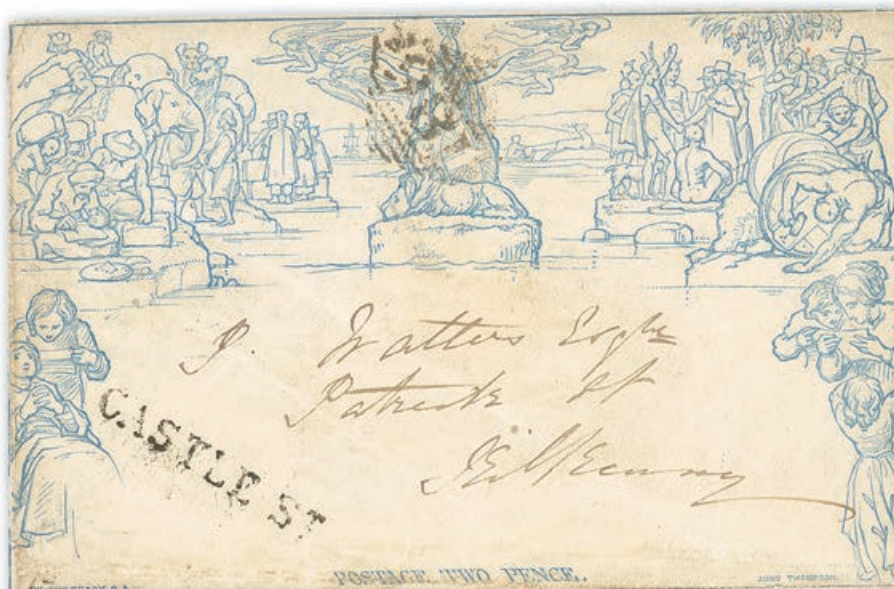 P. Watters Esqre
Patrick St
Kilkenny
CASTLE ST
POSTAGE TWO PENCE.
JOHN THOMPSON.